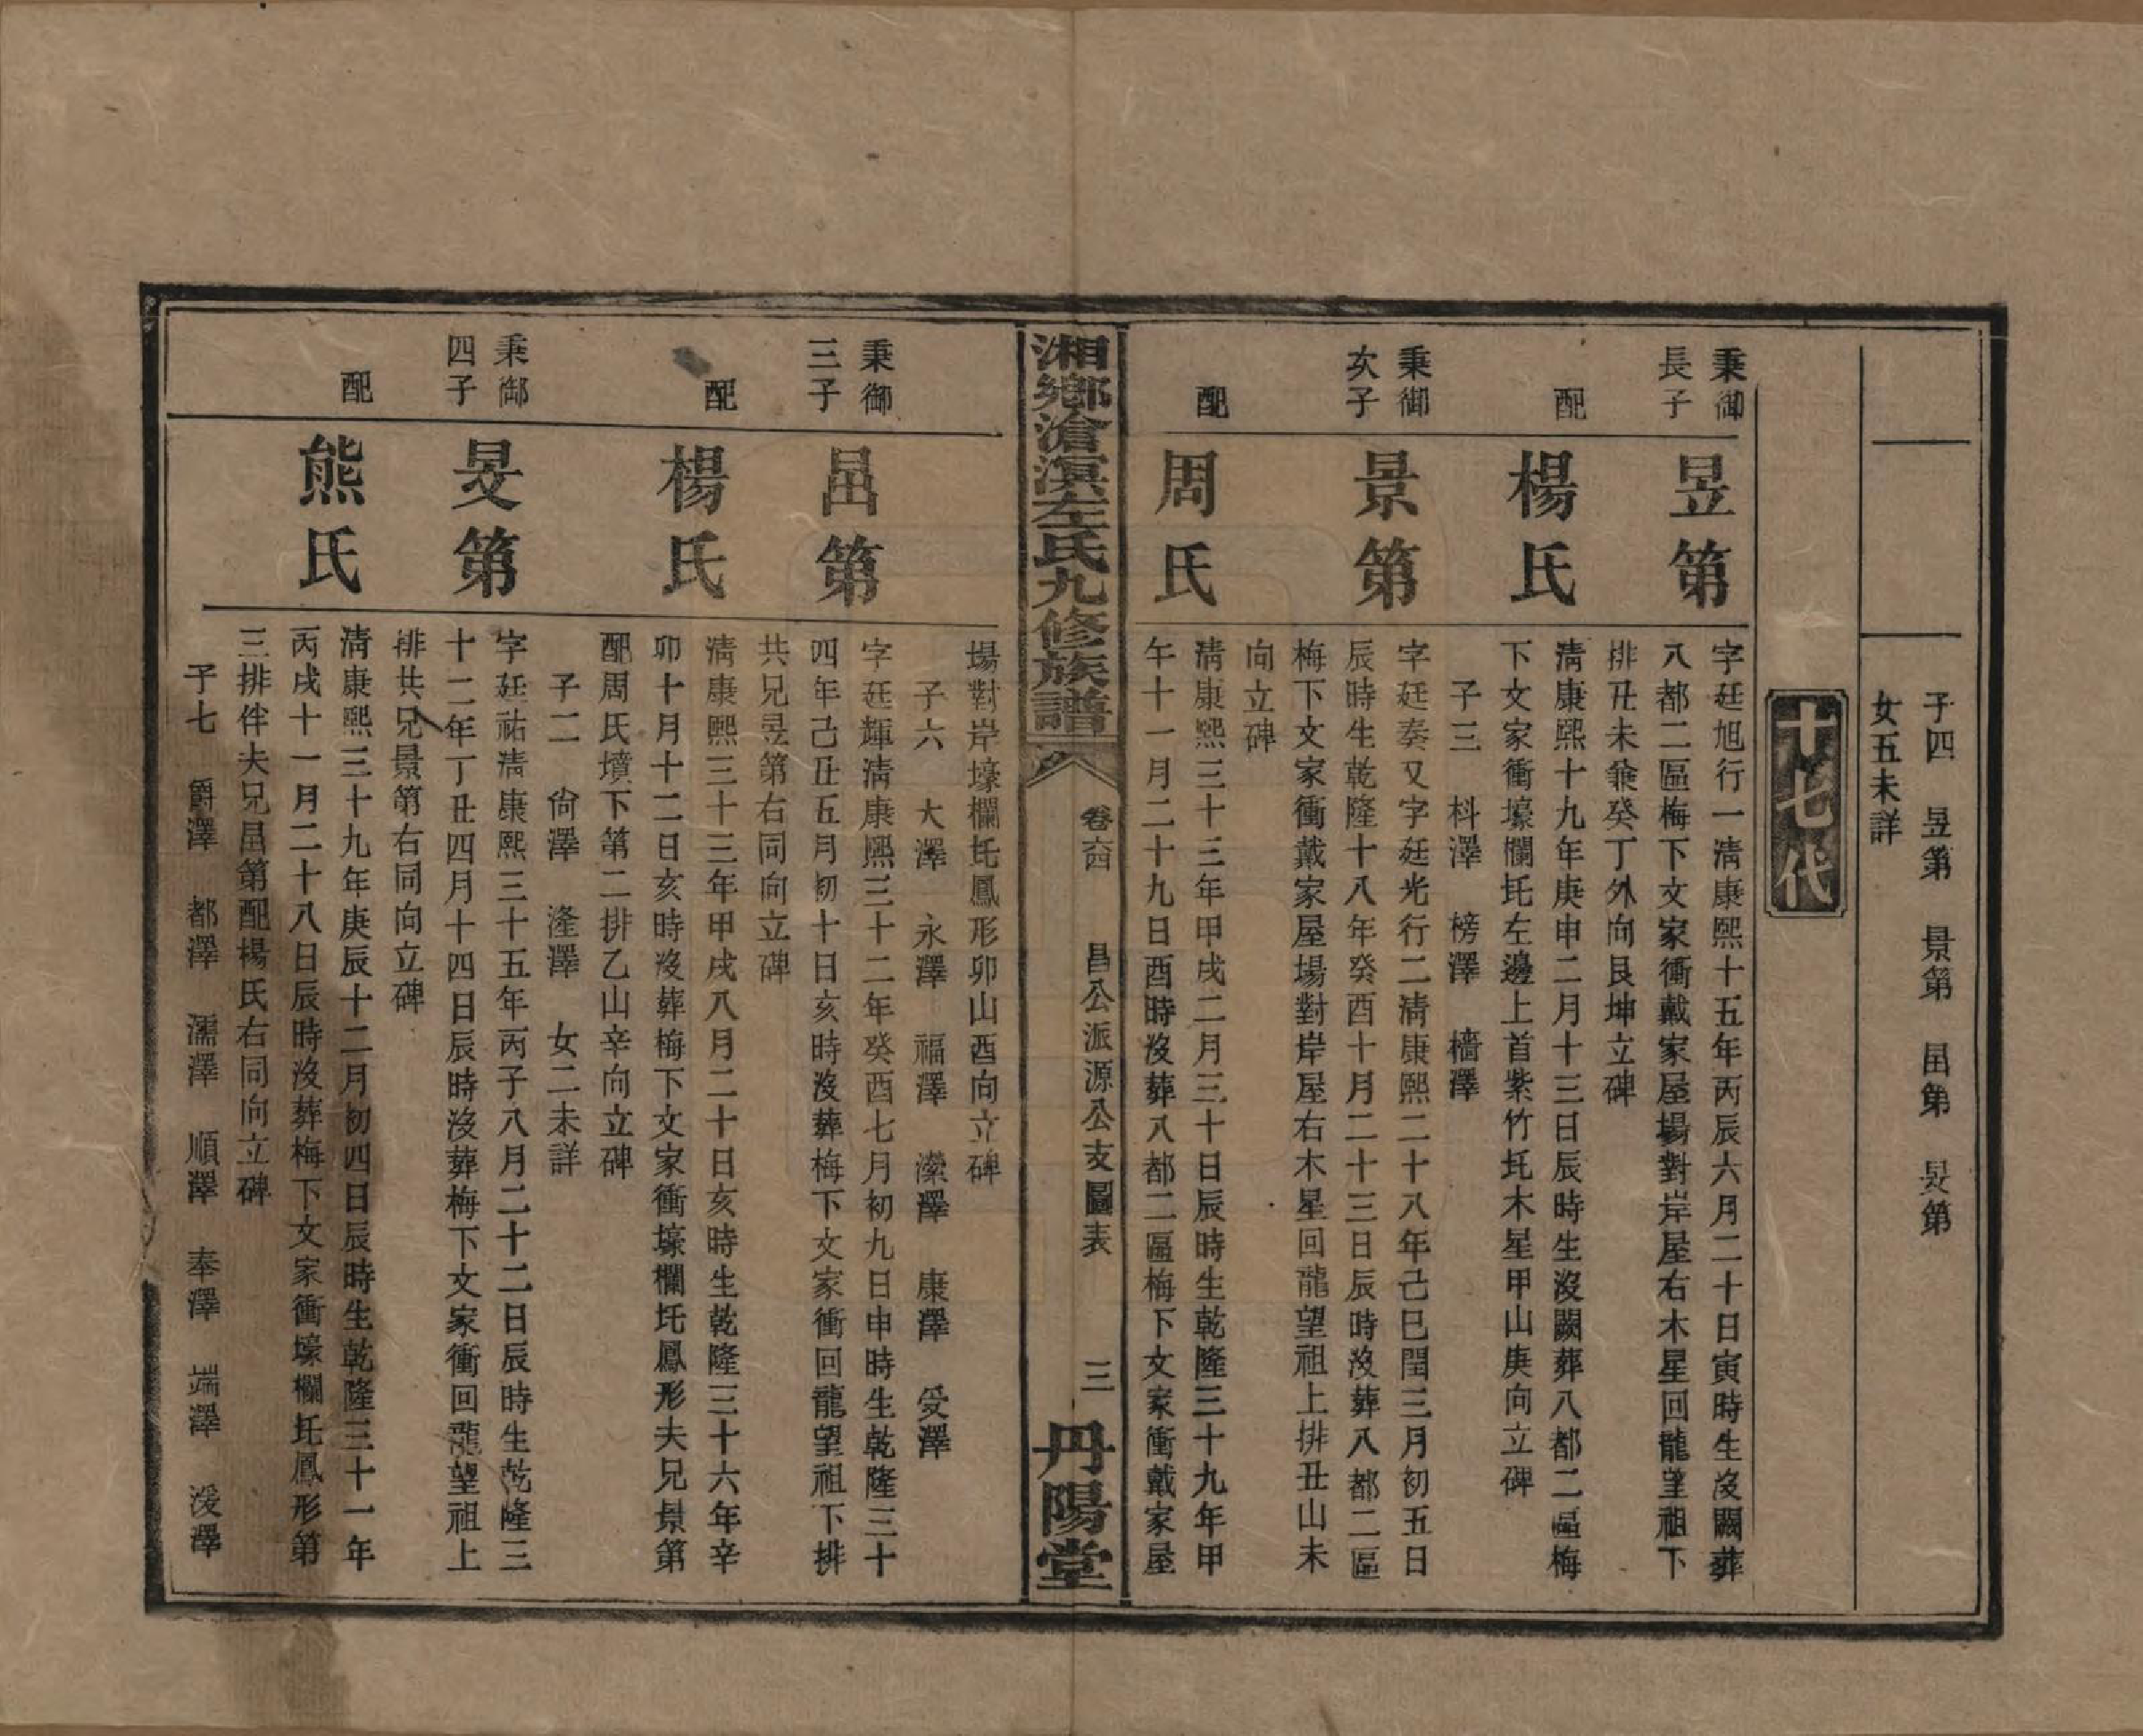 子四　昱第　景第　畕第　旻第
女五未詳
十七代
秉御
長子
昱第
字廷旭行一淸康熙十五年丙辰六月二十日寅時生沒闕葬
八都二區梅下文家衝戴家屋場對岸屋右木星回龍望祖下
排丑未兼癸丁外向艮坤立碑
配
楊氏
淸康熙十九年庚申二月十三日辰時生沒闕葬八都二區梅
下文家衝壕欄圫左邊上首紫竹圫木星甲山庚向立碑
子三　枓澤　榜澤　檣澤
秉御
次子
景第
字廷奏又字廷光行二淸康熙二十八年己巳閏三月初五日
辰時生乾隆十八年癸酉十月二十三日辰時沒葬八都二區
梅下文家衝戴家屋場對岸屋右木星回龍望祖上排丑山未
向立碑
配
周氏
淸康熙三十三年甲戌二月三十日辰時生乾隆三十九年甲
午十一月二十九日酉時沒葬八都二區梅下文家衝戴家屋
湘鄉滄溟左氏九修族譜
卷六四　昌公派源公支圖表　三
丹陽堂
場對岸壕欄圫鳳形卯山酉向立碑
子六　大澤　永澤　福澤　瀠澤　康澤　受澤
秉御
三子
畕第
字廷輝淸康熙三十二年癸酉七月初九日申時生乾隆三十
四年己丑五月初十日亥時沒葬梅下文家衝回龍望祖下排
共兄昱第右同向立碑
配
楊氏
淸康熙三十三年甲戌八月二十日亥時生乾隆三十六年辛
卯十月十二日亥時沒葬梅下文家衝壕欄圫鳳形夫兄景第
配周氏墳下第二排乙山辛向立碑
子二　尙澤　漋澤　女二未詳
秉御
四子
旻第
字廷祐淸康熙三十五年丙子八月二十二日辰時生乾隆三
十二年丁丑四月十四日辰時沒葬梅下文家衝回龍望祖上
排共兄景第右同向立碑
配
熊氏
淸康熙三十九年庚辰十二月初四日辰時生乾隆三十一年
丙戌十一月二十八日辰時沒葬梅下文家衝壕欄圫鳳形第
三排伴夫兄畕第配楊氏右同向立碑
子七　爵澤　都澤　濡澤　順澤　奉澤　端澤　湲澤